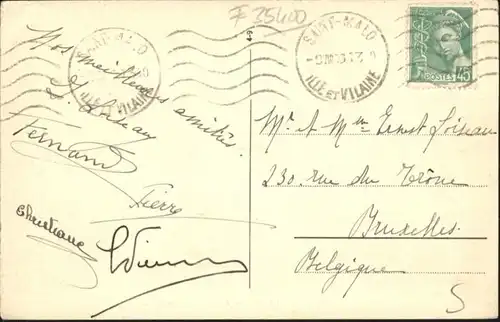 F 35400
SAINT-MALO
ILLE ET VILAINE
SAINT-MALO
ILLE ET VILAINE
POSTES 45
Nos meilleures amitiés.
Fernand
Pierre
Christiane
Mr et Mme Ernst Loiseau
230 rue du Trône
Bruxelles.
Belgique
S